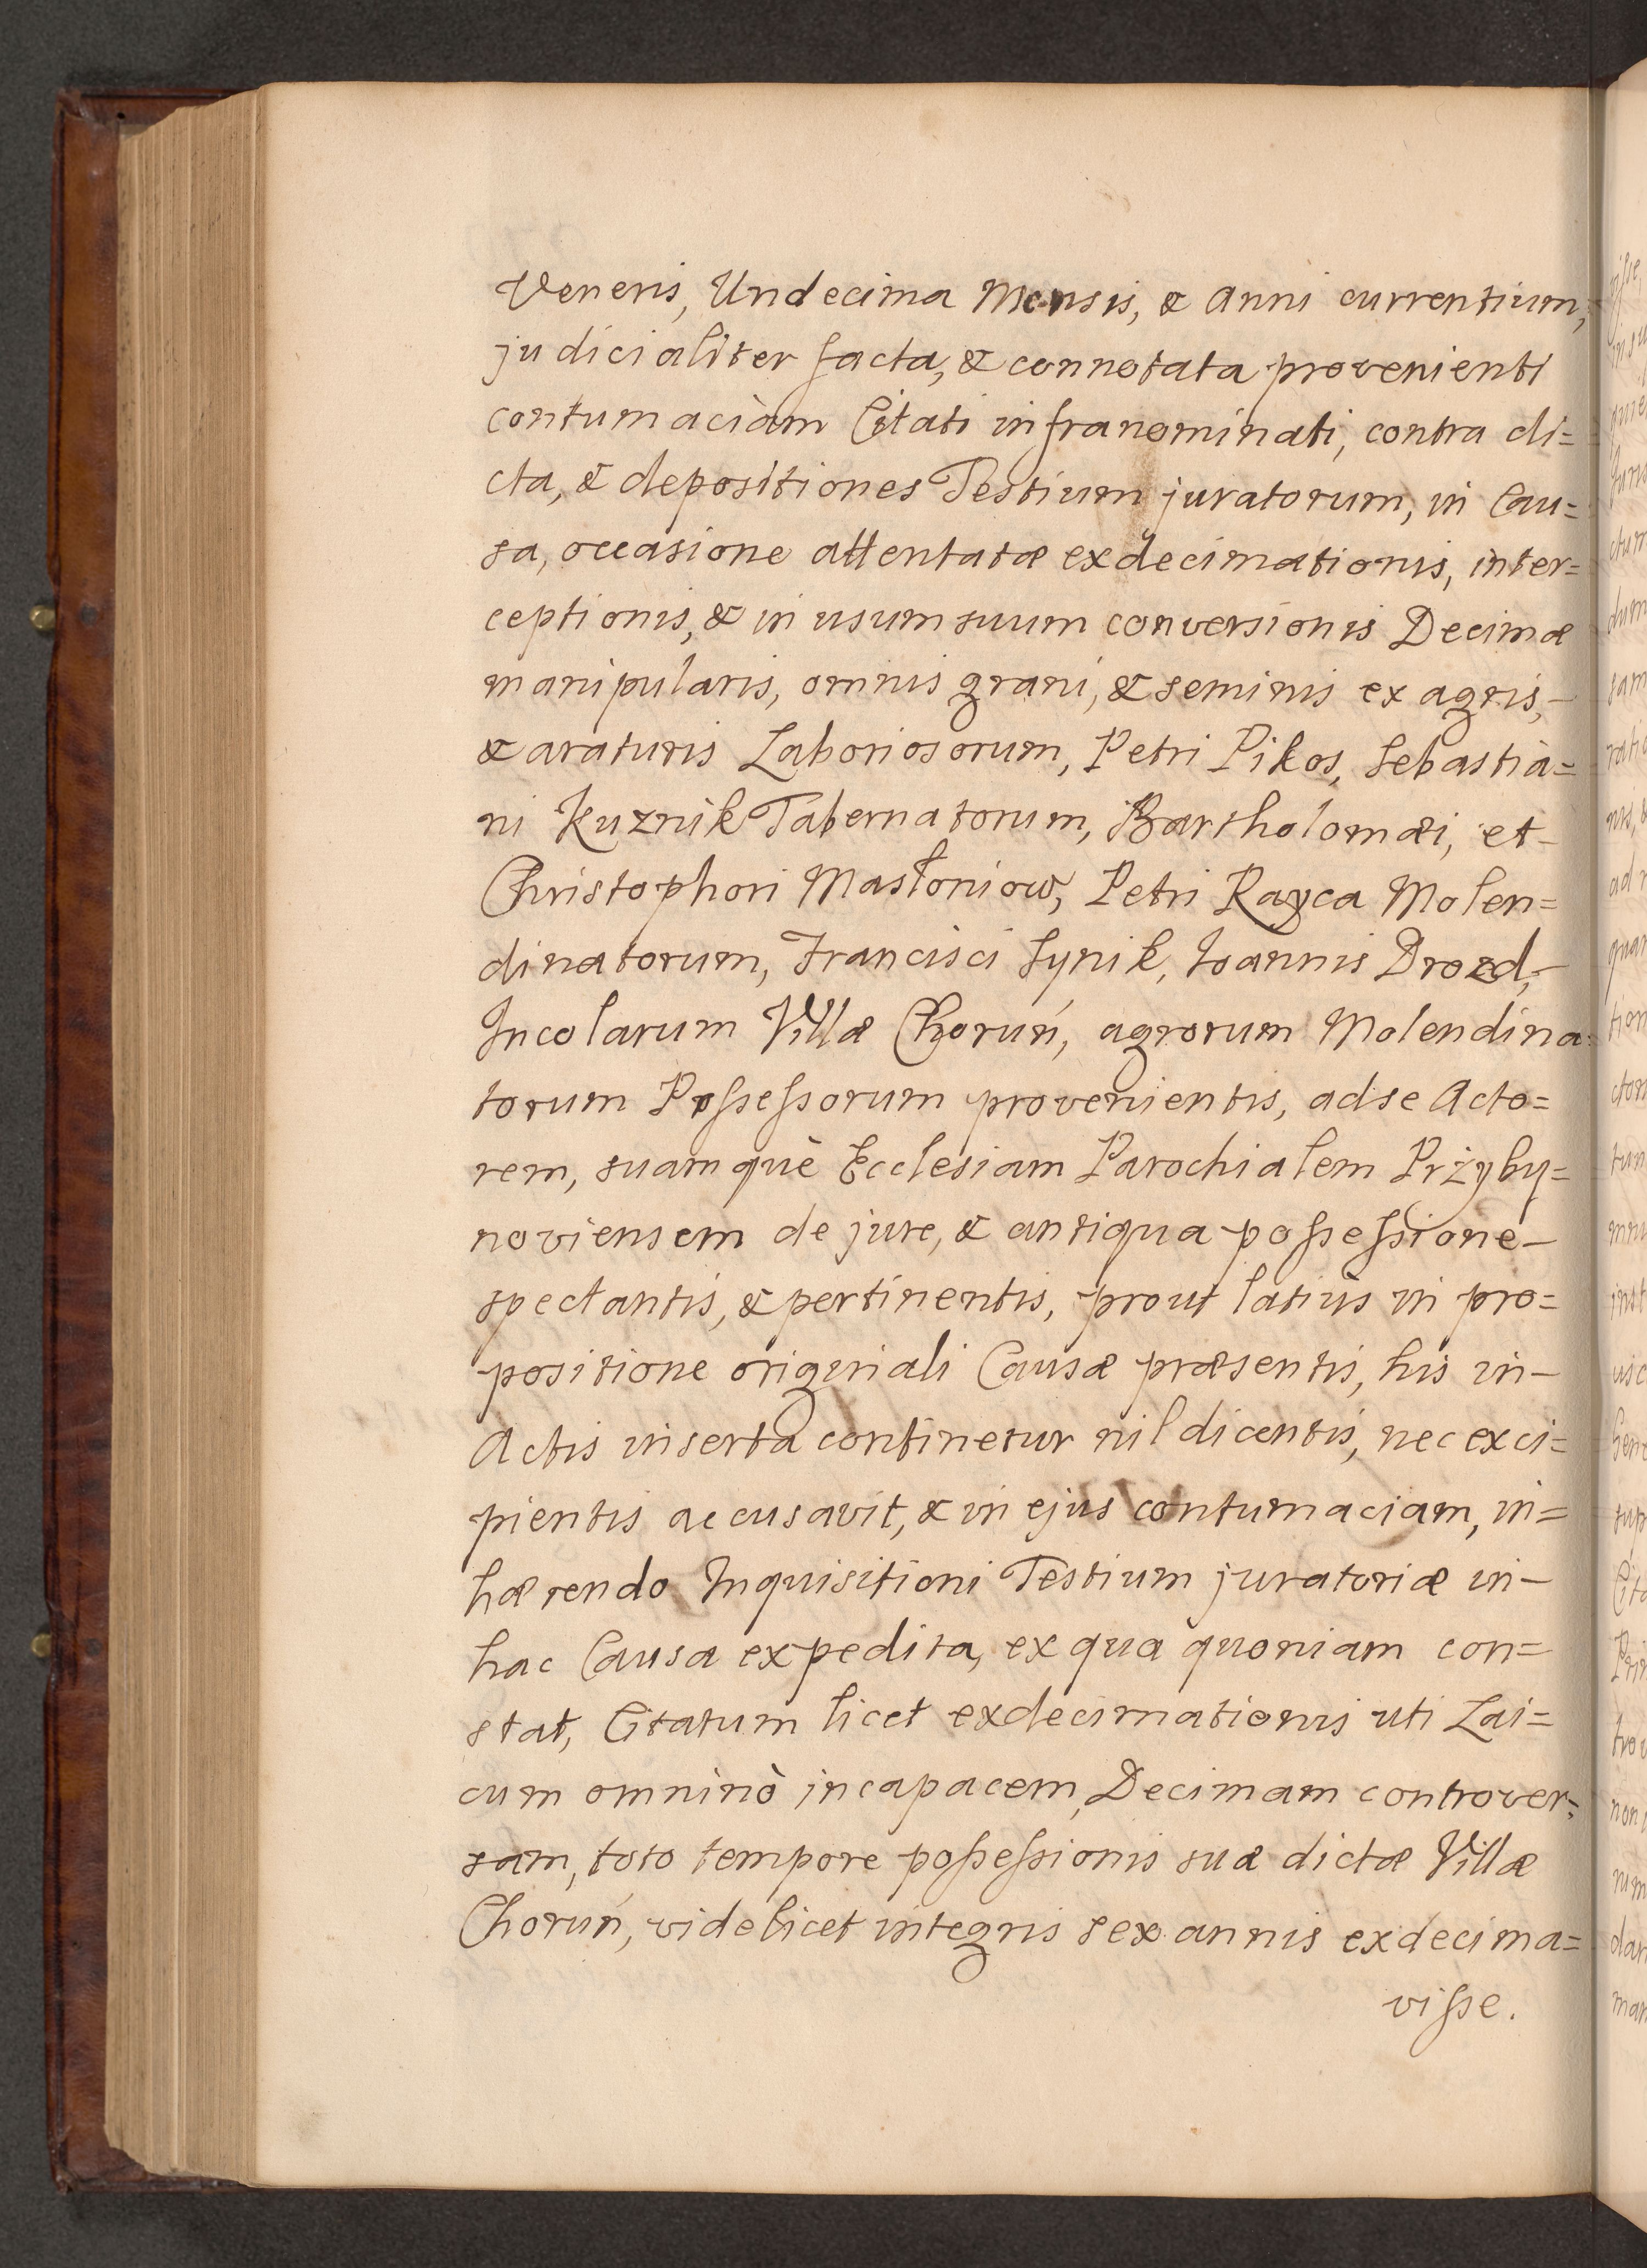 Veneris, Undecima Mensis, & Anni currentium,
judicialiter facta, & connotata provenienti
contumaciam Citati infranominati, contra di=
cta, & depositiones Testium juratorum, in Cau=
sa, occasione attentatæ exdecimationis, inter=
ceptionis, & in usum suum conversionis Decimæ
manipularis, omnis grani, & seminis ex agris,–
& araturis Laboriosorum, Petri Pikos, Sebastia=
ni Kuznik Tabernatorum, Bartholomæi, et–
Christophori Masłoniow, Petri Rayca Molen=
dinatorum, Francisci Synik, Joannis Drozd,–
Incolarum Villæ Choruń, agrorum Molendina=
torum Poſseſsorum provenientis, ad se Acto=
rem, suamquè Ecclesiam Parochialem Prżyby=
noviensem de jure, & antiqua poſseſsione–
spectantis, & pertinentis, prout latiùs in pro=
positione originali Causæ præsentis, his in–
Actis inserta continetur nil dicentis, nec exci=
pientis accusavit, & in ejus contumaciam, in=
hærendo Inquisitioni Testium juratoriæ in–
hac Causa expedita, ex qua quoniam con=
stat, Citatum licet exdecimationis uti Lai=
cum omninò incapacem, Decimam controver=
sam, toto tempore poſseſsionis suæ dictæ Villæ
Choruń, videlicet integris sex annis exdecima=
viſse.